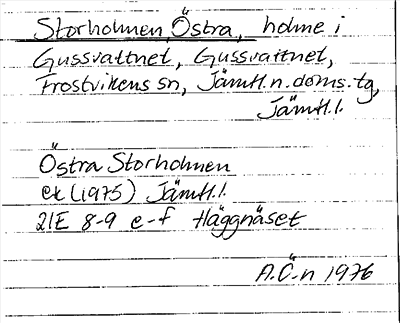 Storholmen Östra, holme i
Gussvattnet, Gussvattnet,
Frostvikens sn, Jämtl. n. doms. tg,
Jämtl. l.
Östra Storholmen
ek (1975) Jämtl. l.
21E 8-9 e-f Häggnäset
A.Ö.n 1976